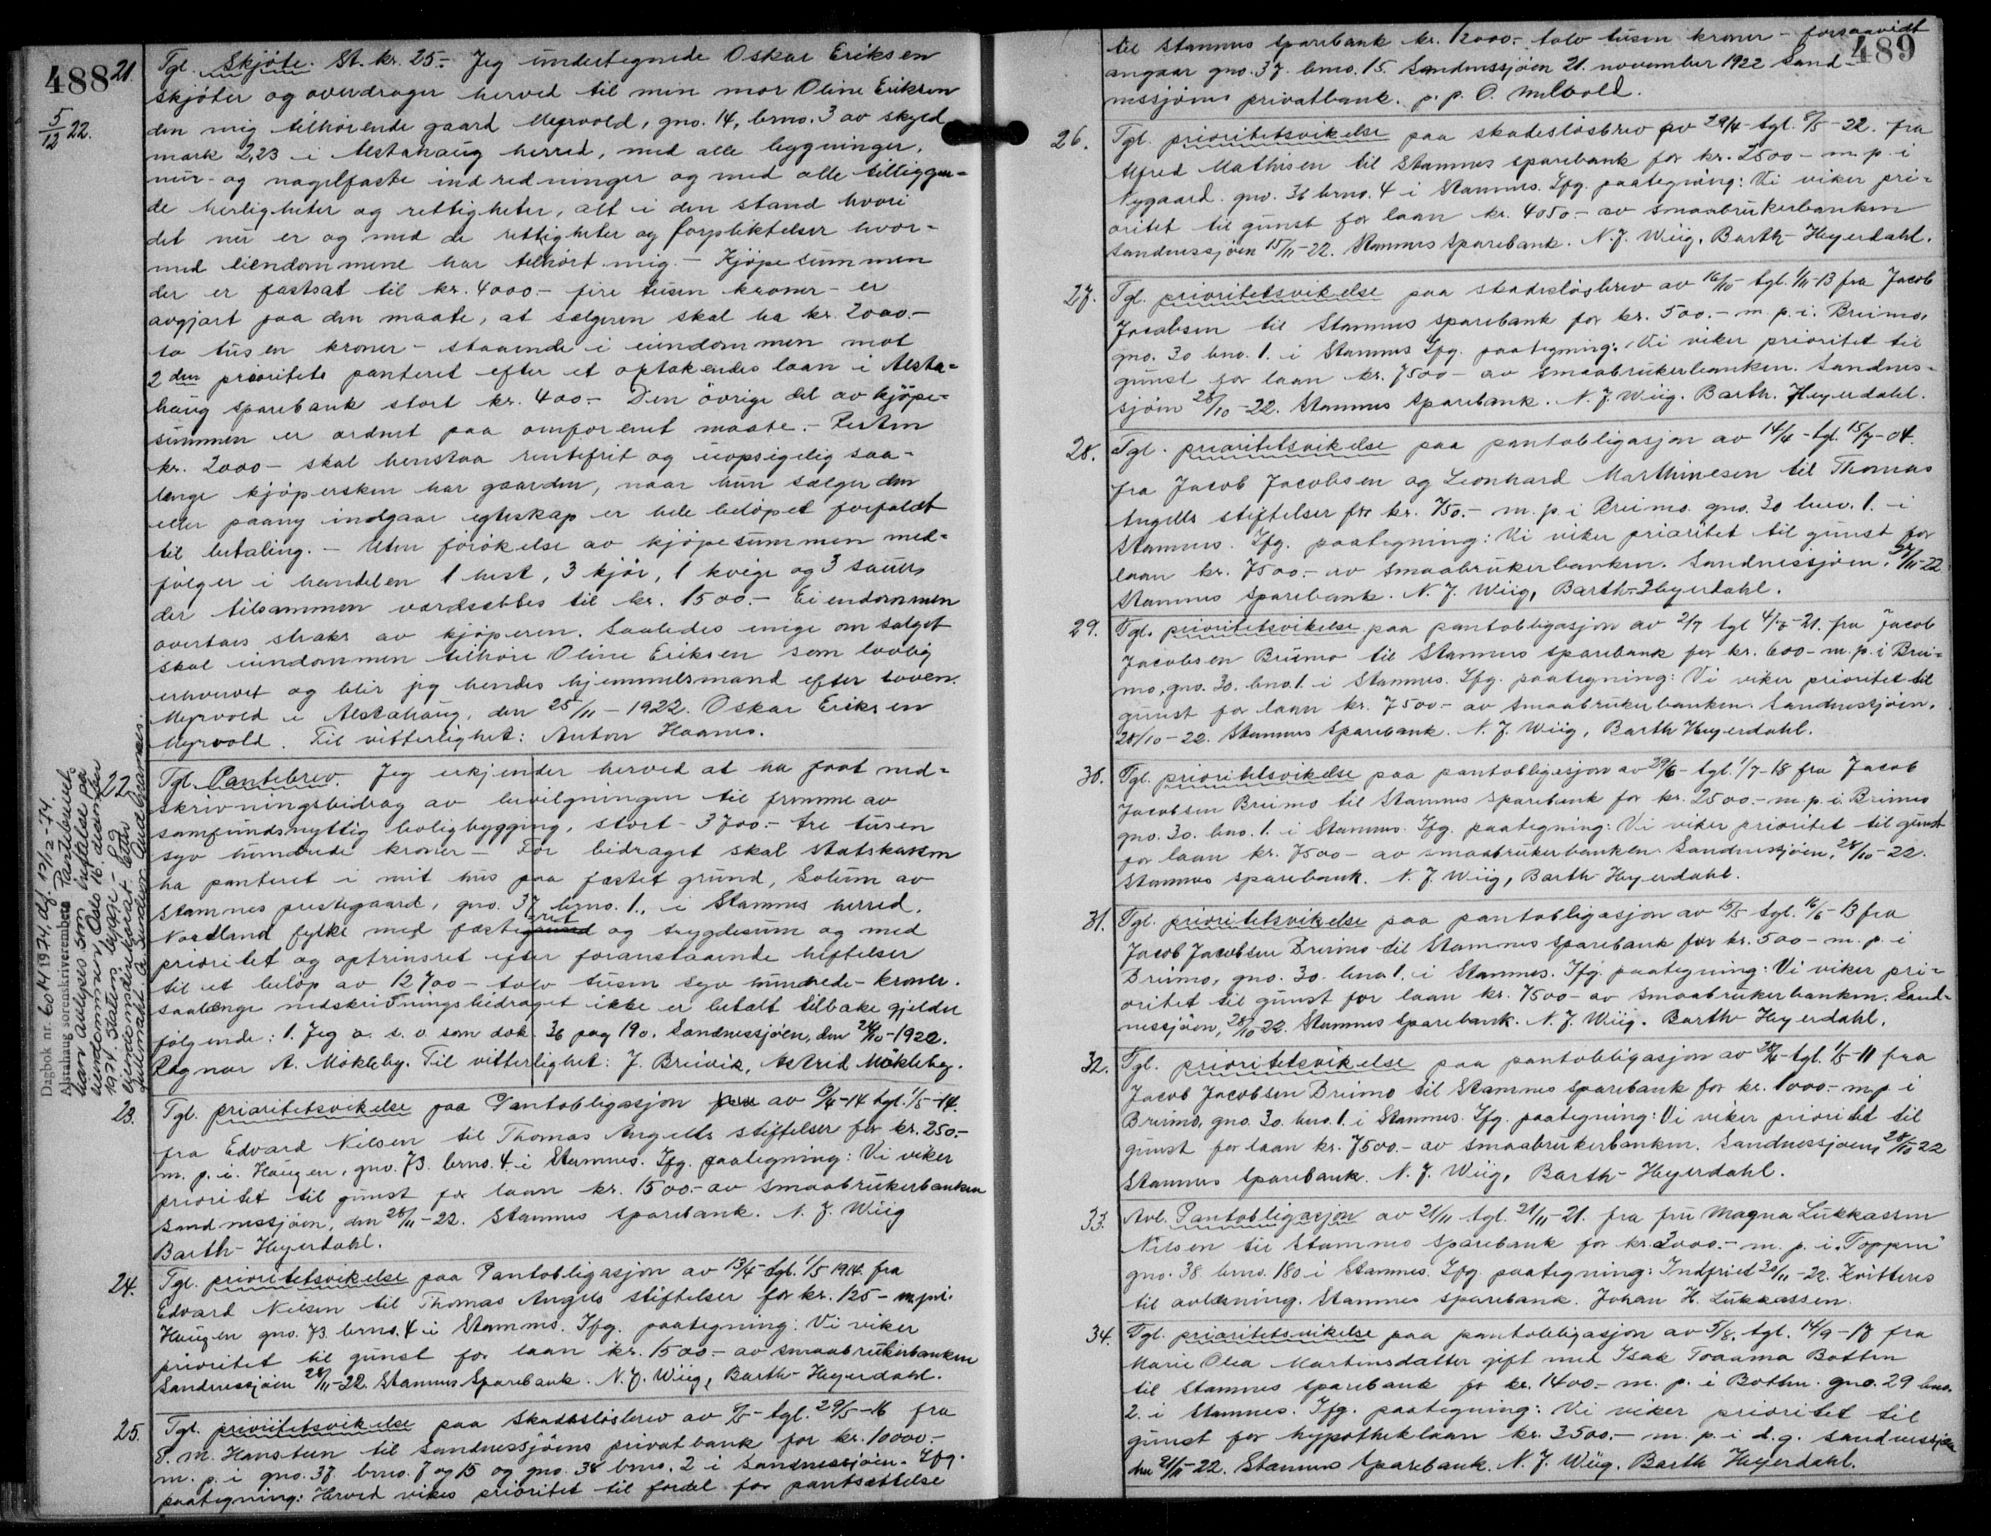 488
5/12 22.
21. Tgl. Skjöte. St. kr. 25.- Jeg undertegnede Oskar Eriksen
skjöter og overdrager herved til min mor Oline Eriksen
den mig tilhörende gaard Myrvold, gno. 14, brno. 3 av skyld
mark 2,23 i Alstahaug herred, med alle bygninger,
mur- og nagelfaste indredninger og med alle tilliggen-
de herligheter og rettigheter, alt i den stand hvori
det nu er og med de rettigheter og forpliktelser hvor-
med eiendommene har tilhört mig. - Kjöpesummen
der er fastsat til kr. 4000.- fire tusen kroner - er
avgjort paa den maate, at sælgeren skal ha kr. 2000.-
to tusen kroner - staaende i eiendommen mot
2den prioritets panteret efter et optakendes laan i Alsta-
haug sparebank stort kr. 400.- Den övrige del av kjöpe-
summen er ordnet paa omforenet maate. - Resten
kr. 2000 - skal henstaa rentefrit og uopsigelig saa-
længe kjöpersken har gaarden, naar hun sælger den
eller paany indgaar egteskap er hele belöpet forfaldt
til betaling. - Uten forökelse av kjöpesummen med-
følger i handelen 1 hest, 3 kjör, 1 kvige og 3 sauer
der tilsammen værdsættes til kr. 1500.- Eiendommen
overtaes straks av kjöperen. Saaledes enige om salget
skal eiendommen tilhöre Oline Eriksen som lovlig
erhvervet og blir jeg hendes hjemmelsmand efter loven.
Myrvold i Alstahaug, den 25/11 - 1922. Oskar Eriksen
Myrvold. Til vitterlighet: Anton Haanes.
22. Tgl. Pantebrev. Jeg erkjender herved at ha faat ned-
skrivningsbidrag av bevilgningen til fremme av
samfundsnyttig boligbygging, stort - 3700.- tre tusen
syv hundrede kroner - For bidraget skal statskassen
ha panteret i mit hus paa fæstet grund, Solum av
Stamnes prestegaard, gno. 37 brno. 1., i Stamnes herred.
Nordland fylke med fæstegrund ret og brygdesum og med
prioritet og optrinsret efter foranstaaende heftelser
til et belöp av 12700 - tolv tusen syv hundrede - kroner.
saalænge nedskrivningsbidraget ikke er betalt tilbake gjelder
følgende: 1. Jeg o. s. v. som dok 36 pag 190. Sandnessjöen, den 24/10 - 1922.
Ragnar A. Mökleby. Til vitterlighet: J. Breivik, Astrid Mökleby.
Dagbok nr. 6014 1974. df. 17/12-74.
Alstahaug sorenskriverembete Pantebrevet
kan avlyses som heftelse på
eiendommen. Oslo 16. desember
1974. Statens bygge- og
eiendomsdirektorat. etter
23. Tgl. prioritetsvikelse paa Pantobligasjon av 9/4-14 tgl. 1/5-14.
fra Edvard Nilsen til Thomas Angells stiftelser for kr. 250.-
m. p. i. Haugen, gno. 73. brno. 4 i Stamnes. Ifg. paategning: Vi viker
prioritet til gunst for laan kr. 1500.- av Smaabrukerbanken
Sandnessjöen, den 28/11-22. Stamnes Sparebank. N. J. Wiig
Barth-Heyerdahl.
24. Tgl. prioritetsvikelse paa Pantobligasjon av 13/4 - tgl. 1/5 1914. fra
Edvard Nilsen til Thomas Angells stiftelser for kr. 125 - m. p. i.
Haugen gno. 73. brno. 4 i Stamnes. Ifg. paategning: Vi viker
prioritet til gunst for laan kr. 1500.- av Smaabrukerbanken
Sandnessjöen 28/11-22. Stamnes Sparebank. N. J. Wiig, Barth-Heyerdahl.
25. Tgl. prioritetsvikelse paa Skadeslösbrev av tgl. 29/5-16 fra
P. M. Hansteen til Sandnessjöens privatbank for kr. 10000.-
m. p. i gno. 37 brno. 7 og 15 og gno. 38 brno. 2 i Sandnessjöen. Ifg.
paategning: Herved vikes prioritet til fordel for pantsættelse
489
til Stamnes Sparebank kr. 12000.- tolv tusen kroner - forsaavidt
angaar gno. 37. brno. 15. Sandnessjöen 21. november 1922 Sand-
nessjöens privatbank. p. p. O. Melbold.
26. Tgl. prioritetsvikelse paa skadeslösbrev av 29/4 - tgl. 8/5 - 22. fra
Alfred Mathisen til Stamnes Sparebank for kr. 2500 - m. p. i
Nygaard. gno. 36 brno. 4 i Stamnes. Ifg. paategning: Vi viker pri-
oritet til gunst for laan kr. 4050.- av Smaabrukerbanken
Sandnessjöen 15/11-22. Stamnes Sparebank. N. J. Wiig. Barth-Heyerdahl.
27. Tgl. prioritetsvikelse paa skadeslösbrev av 16/10 - tgl. 1/11-13 fra Jacob
Jacobsen til Stamnes Sparebank for kr. 500.- m. p. i. Breimo,
gno. 30 bno. 1. i Stamnes Ifg. paategning: Vi viker prioritet til
gunst for laan kr. 7500 - av Smaabrukerbanken. Sandnes-
sjöen 28/10-22. Stamnes Sparebank. N. J. Wiig. Barth. Heyerdahl.
28. Tgl. prioritetsvikelse paa pantobligasjon av 14/4 - tgl. 15/7-04.
fra Jacob Jacobsen og Leonhard Marthinesen til Thomas
Angells stiftelser for kr. 750.- m. p. i Breimo. gno. 30 bno. 1. i
Stamnes. Ifg. paategning: Vi viker prioritet til gunst for
laan kr. 7500.- av Smaabrukerbanken. Sandnessjöen, 27/11-22
Stamnes Sparebank. N. J. Wiig, Barth-Heyerdahl.
29. Tgl. prioritetsvikelse paa pantobligasjon av 2/7 tgl 4/7-21. fra Jacob
Jacobsen Breimo til Stamnes Sparebank for kr. 600- m. p. i Brei-
mo, gno. 30. bno. 1. i Stamnes. Ifg. paategning: Vi viker prioritet til
gunst for laan kr. 7500.- av Smaabrukerbanken. Sandnessjöen,
28/10-22. Stamnes Sparebank. N. J. Wiig, Barth Heyerdahl.
30. Tgl. prioritetsvikelse paa pantobligasjon av 29/6 - tgl. 1/7-18 fra Jacob
Jacobsen Breimo til Stamnes Sparebank for kr. 2500.- m. p. i. Breimo
gno. 30. bno. 1. i Stamnes. Ifg. paategning: Vi viker prioritet til gunst
for laan kr. 7500 - av Smaabrukerbanken. Sandnessjöen, 28/10-22.
Stamnes Sparebank. N. J. Wiig, Barth Heyerdahl.
31. Tgl. prioritetsvikelse paa pantobligasjon av 15/5 tgl. 16/6-13 fra
Jacob Jacobsen Breimo til Stamnes Sparebank for kr. 500- m. p. i
Breimo, gno. 30. bno 1. i Stamnes. Ifg. paategning: Vi viker pri-
oritet til gunst for laan kr. 7500 - av Smaabrukerbanken. Sand-
nessjöen, 28/10-22. Stamnes Sparebank. N. J. Wiig. Barth Heyerdahl.
32. Tgl. prioritetsvikelse paa pantobligasjon av 28/4 - tgl. 1/5 - 11 fra
Jacob Jacobsen Breimo til Stamnes Sparebank for kr. 1000.- m. p. i
Breimo, gno. 30. bno. 1. i Stamnes. Ifg. paategning: Vi viker prioritet til
gunst for laan kr. 7500.- av Smaabrukerbanken. Sandnessjöen, 28/10 22
Stamnes Sparebank. N. J. Wiig, Barth-Heyerdahl.
33. Avl. Pantobligasjon av 21/11 tgl. 21/11-21. fra fru Magna Lukkassen
Nilsen til Stamnes Sparebank for kr. 3000.- m. p. i „Toppen"
gno. 38 brno. 180 i Stamnes. Ifg. paategning: Indfriet 30/11-22. Kvitteres
til avlæsning. Stamnes Sparebank. Johan H. Lukkassen.
34. Tgl. prioritetsvikelse paa pantobligasjon av 5/8. tgl. 14/9-17 fra
Marie Olea Martinsdatter gift med Isak Toaama Botten
til Stamnes Sparebank for kr. 1400.- m. p. i Botten. gno. 29 bno.
2. i Stamnes. Ifg. paategning: Vi viker prioritet til
gunst for hypotheklaan kr. 3500.- m. p. i d. g. Sandnessjöen
den 21/11-22. Stamnes Sparebank. N. J. Wiig. Barth Heyerdahl.